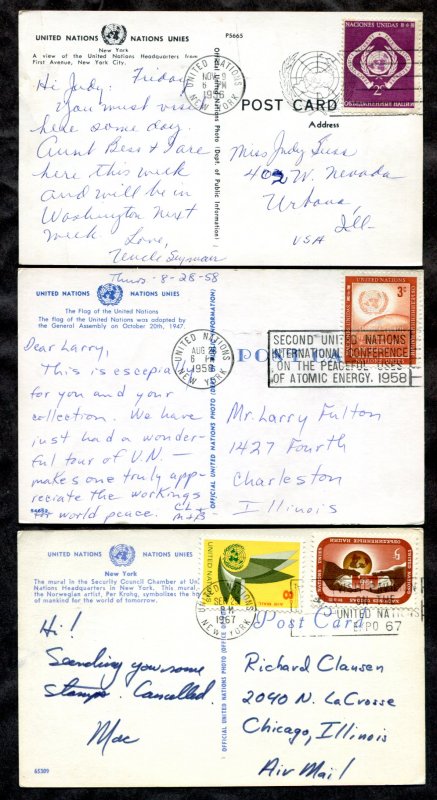 UNITED NATIONS NATIONS UNIES
New York
A view of the United Nations Headquarters from
First Avenue, New York City.
P5665
Friday
Hi Judy:
You must visit
here some day.
Aunt Bess + I are
here this week
and will be in
Washington next
week. Love,
Uncle Seymour
Official United Nations Photo (Dept. of Public Information)
UNITED NATIONS
NOV 9
6 PM
1956
NEW YORK
NACIONES UNIDAS
2c
POST CARD
Address
Miss Judy
402 W. Nevada
Urbana,
Ill.
USA
Thurs - 8-28-58
UNITED NATIONS NATIONS UNIES
The Flag of the United Nations
The flag of the United Nations was adopted by
the General Assembly on October 20th, 1947.
Dear Larry,
This is escepia
for you and your
collection. We have
just had a wonder-
ful tour of U.N –
makes one truly app-
reciate the workings
for world peace.
OFFICIAL UNITED NATIONS PHOTO
UNITED NATIONS
AUG 28
6 PM
1958
NEW YORK
3c
POST CARD
SECOND UNITED NATIONS
INTERNATIONAL CONFERENCE
ON THE PEACEFUL USES
OF ATOMIC ENERGY, 1958
Mr. Larry Fulton
1427 Fourth
Charleston
Illinois
UNITED NATIONS NATIONS UNIES
New York
The mural in the Security Council Chamber at
Nations Headquarters in New York. This mural,
the Norwegian artist, Per Krohg, symbolizes the
of mankind for the world of tomorrow.
Hi!
Sending you some
stamps. Cancelled.
Mac
65309
OFFICIAL UNITED NATIONS PHOTO
UNITED NATIONS
AIR MAIL
8
1967
NEW YORK
5c
UNITED NATIONS
EXPO 67
Post Card
Richard Clausen
2040 N. LaCrosse
Chicago, Illinois
Air Mail